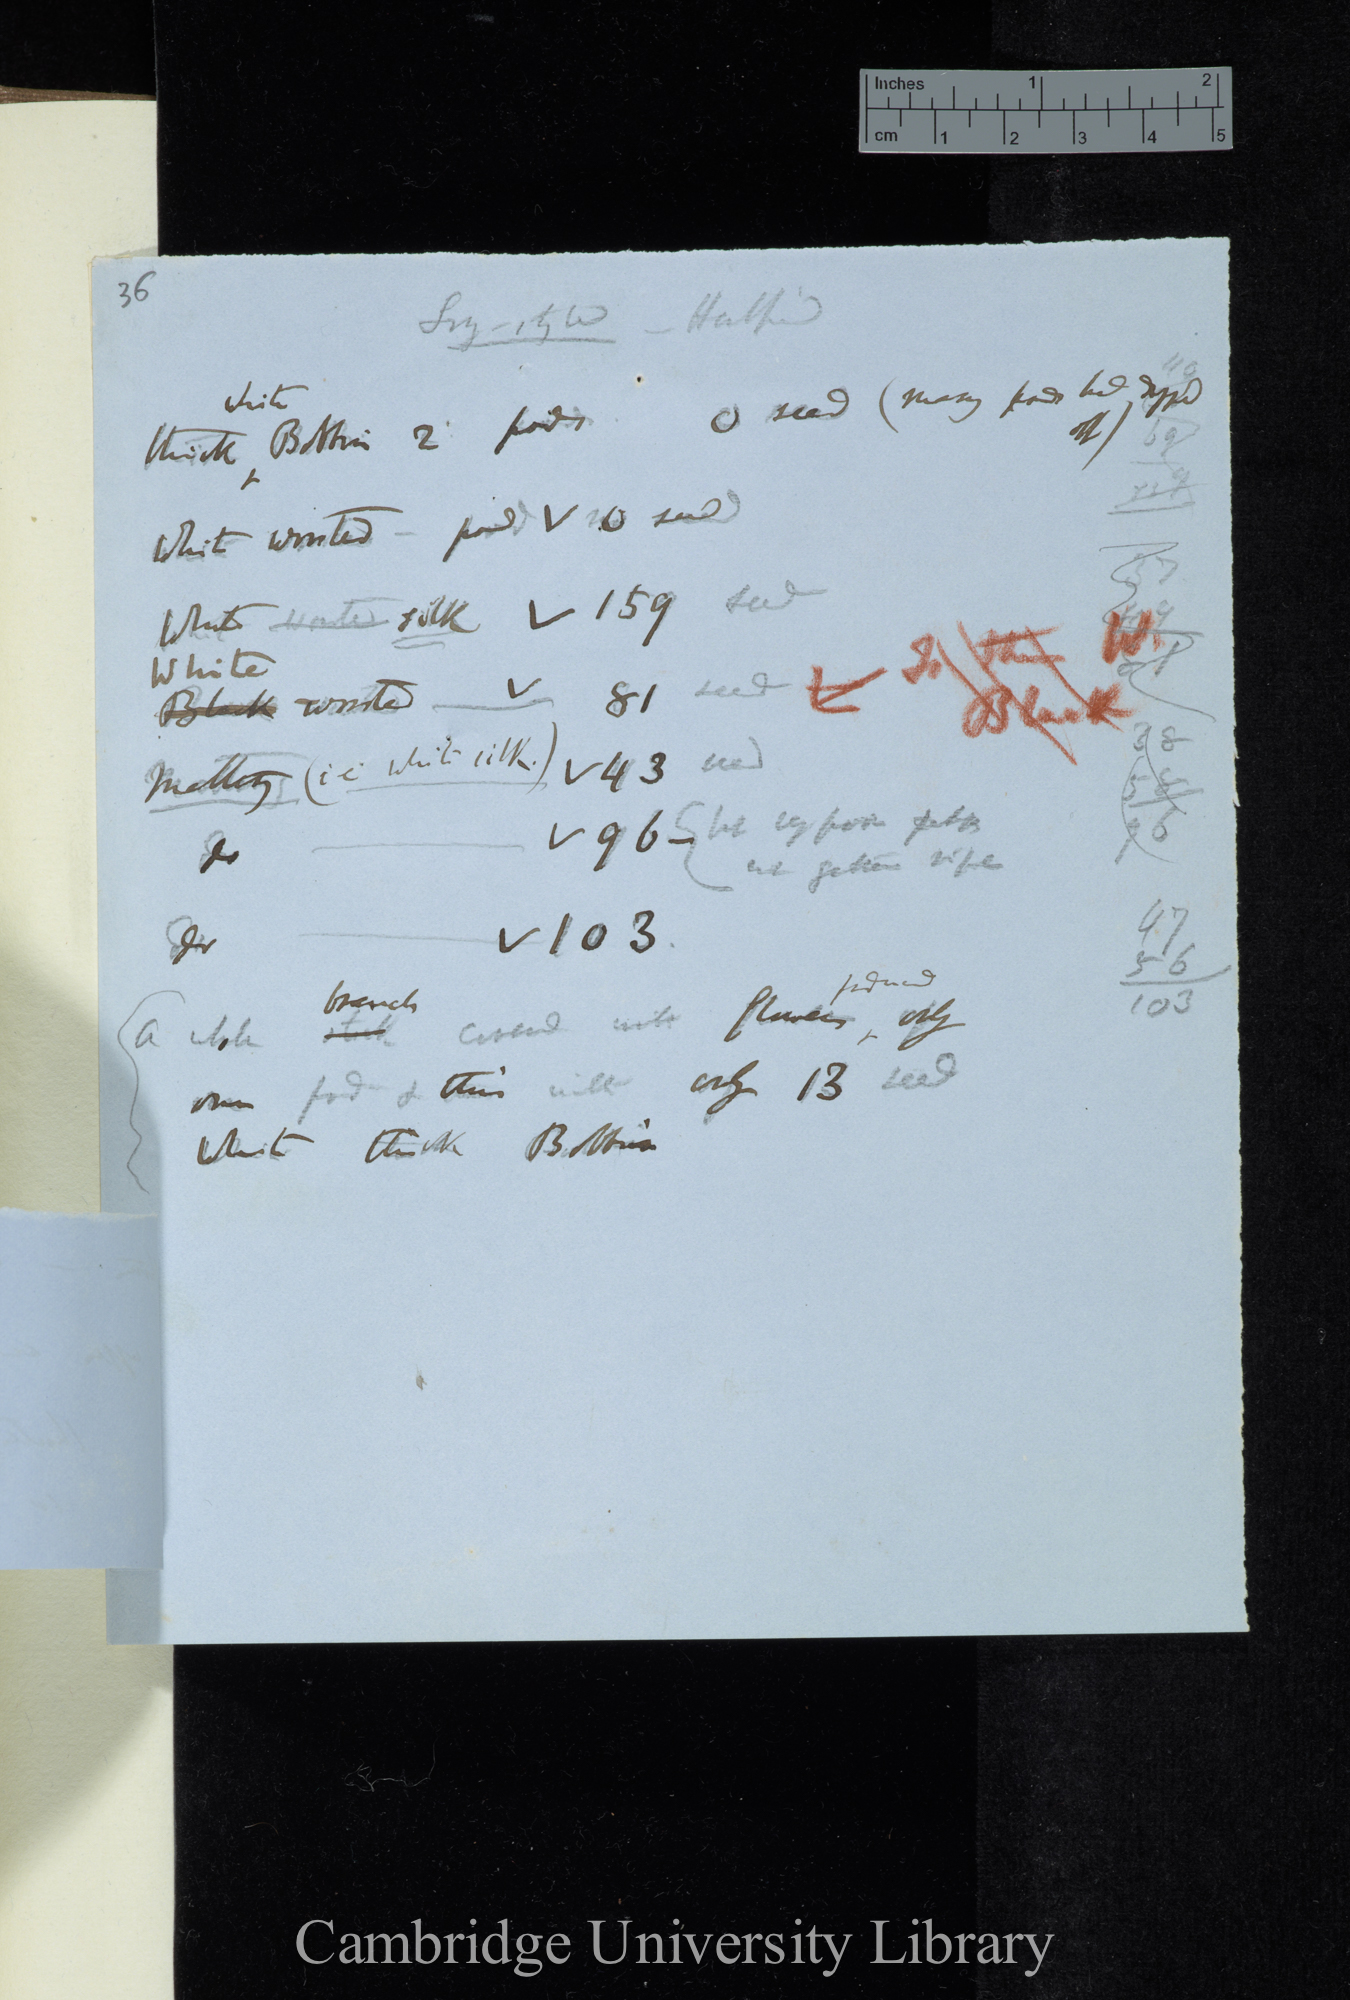 Inches 1 2
cm 1 2 3 4 5
36
Long-styled — Halfpin
white
thick Bobbin 2 pods 0 seed (many pods had dropped
off)
White worsted — pod ✓ 0 seed
White worsted silk ✓ 159 seed
White
Black worsted — ✓ 81 seed
W.
Black
(i.e. white silk.) ✓ 43 seed
do ——— ✓ 96 —
not gotten ripe
do ——— ✓ 103
38
58
96
47
56
103
branch produced
A whole stalk covered with flowers, only
one pod & this with only 13 seed
White thick Bobbin
Cambridge University Library